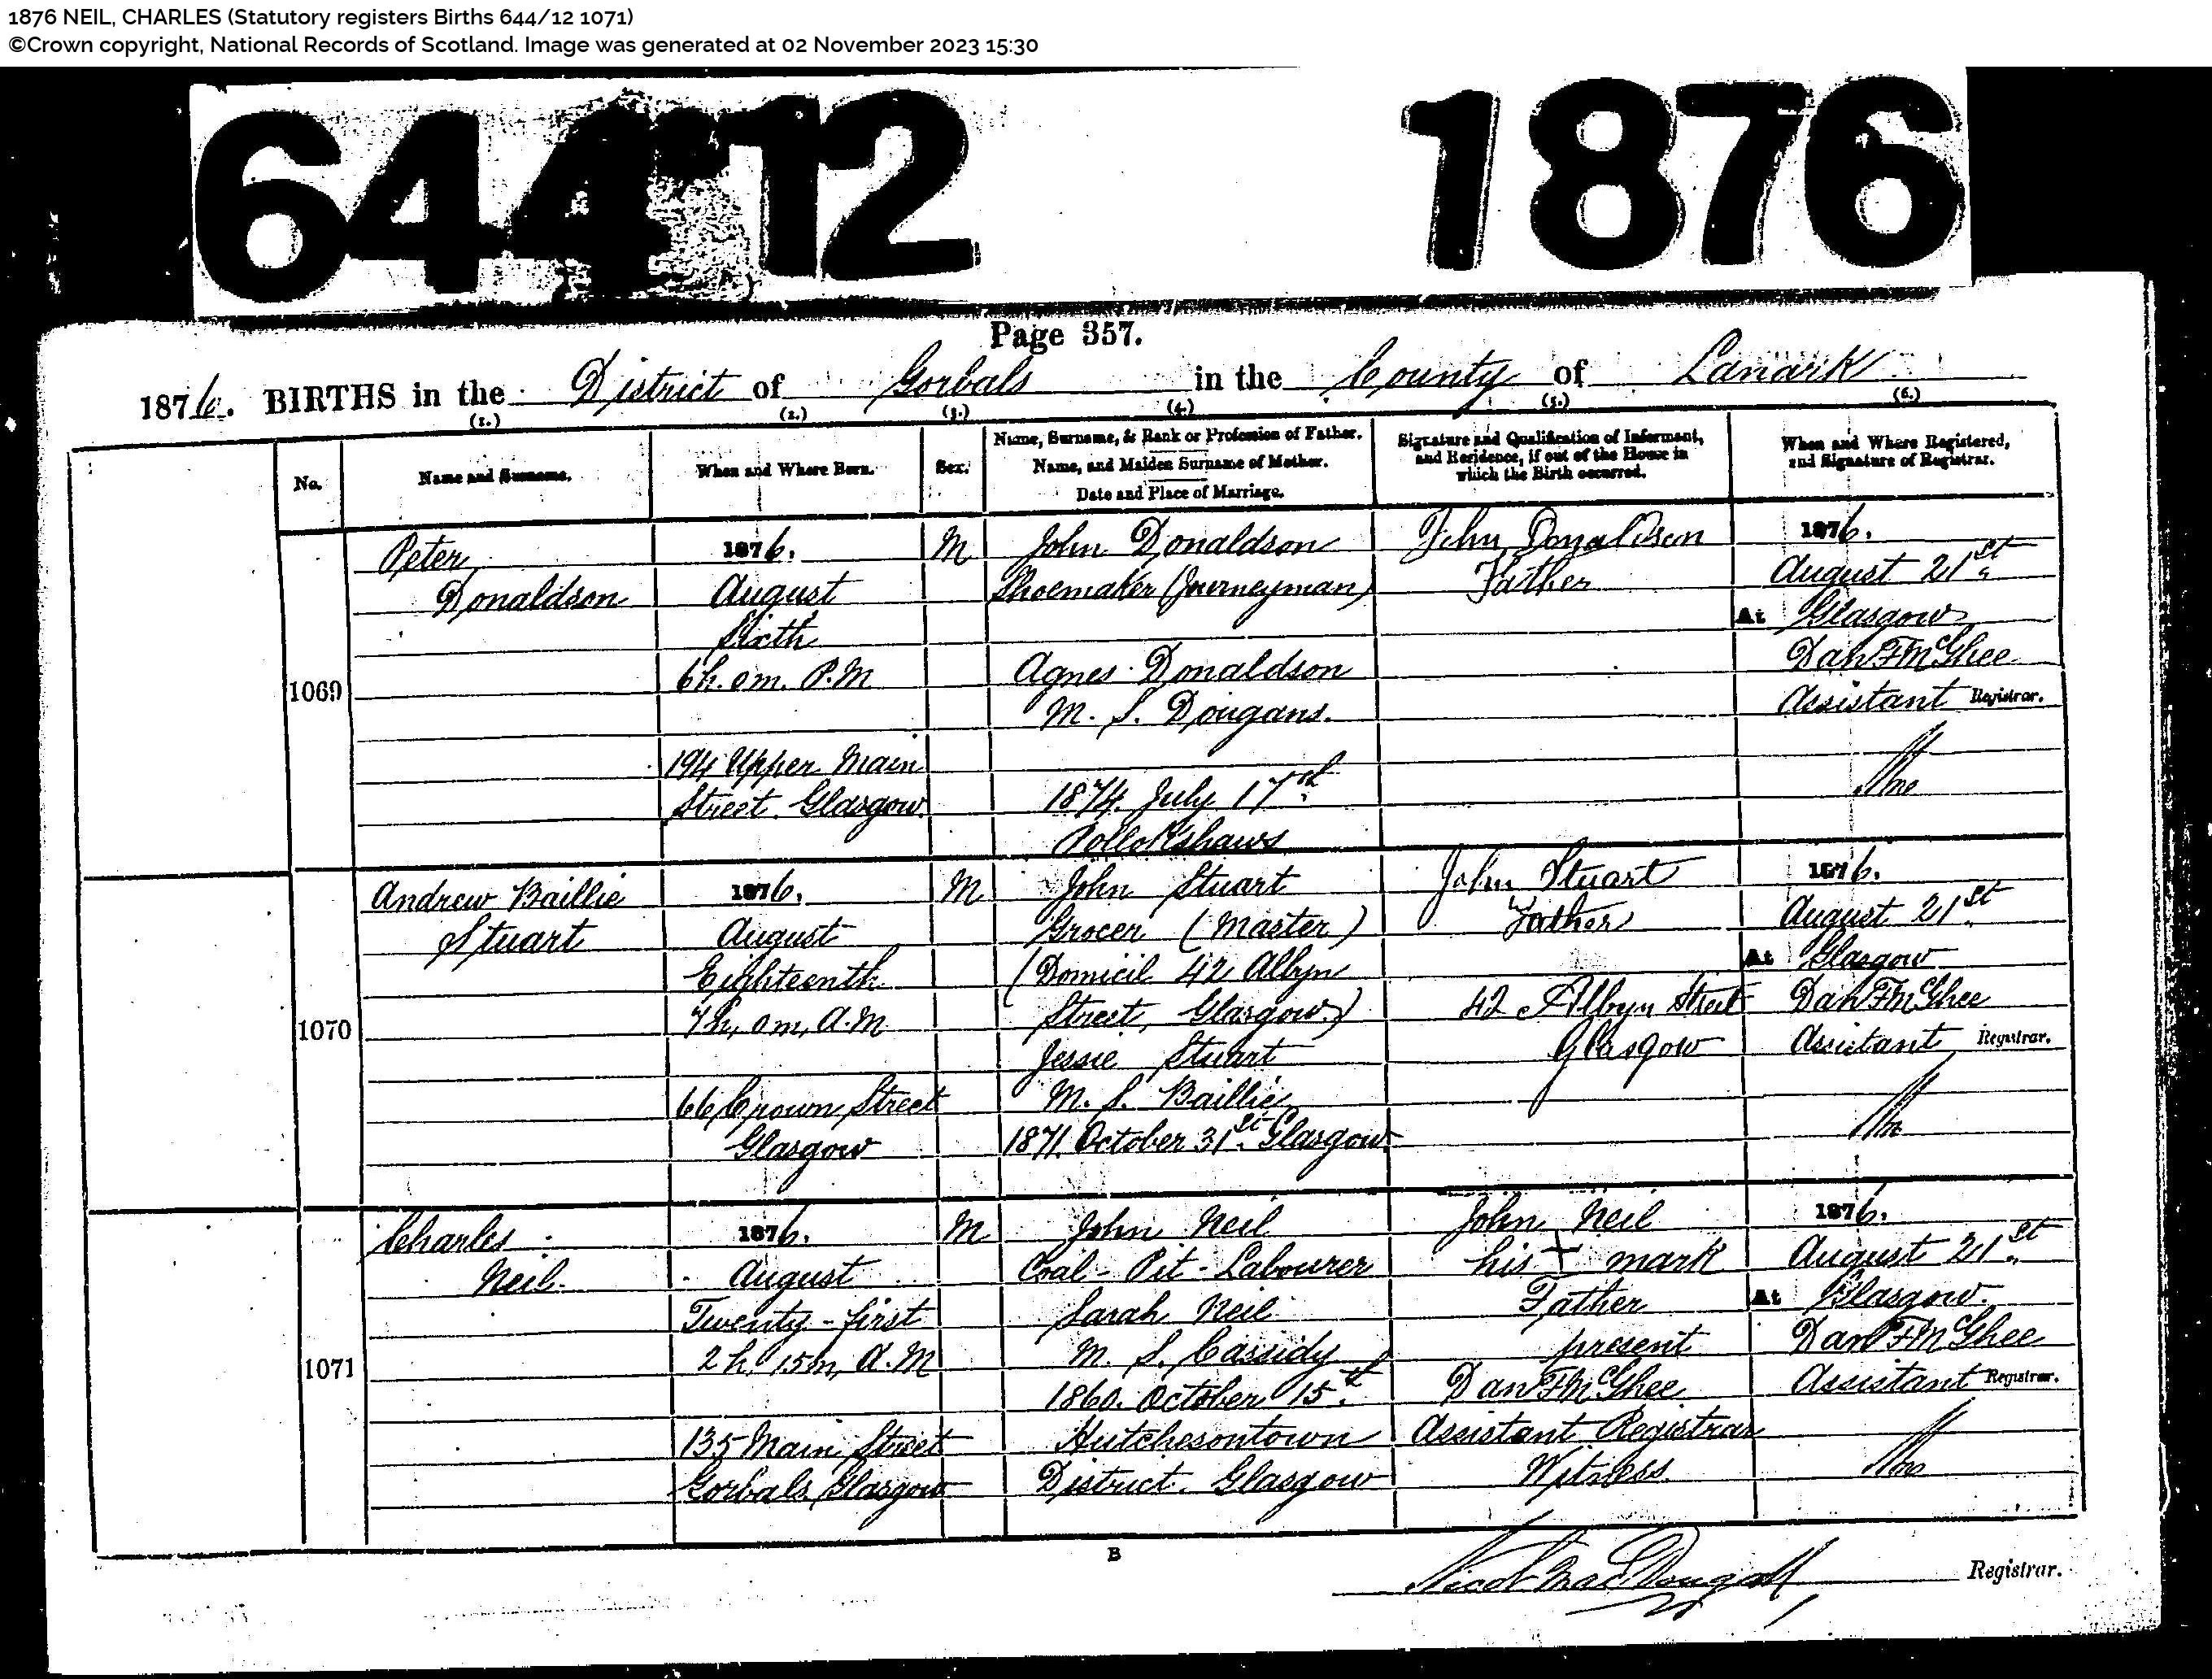 1876 NEIL, CHARLES (Statutory registers Births 644/12 1071)
©Crown copyright, National Records of Scotland. Image was generated at 02 November 2023 15:30
644 12 1876
Page 357.
1876. BIRTHS in the District of Gorbals in the County of Lanark
(1.) (2.) (3.) (4.) (5.) (6.)
No.
Name and Surname.
When and Where Born.
Sex.
Name, Surname, & Rank or Profession of Father.
Name, and Maiden Surname of Mother.
Date and Place of Marriage.
Signature and Qualification of Informant,
and Residence, if out of the House in
which the Birth occurred.
When and Where Registered,
and Signature of Registrar.
1069
Peter
Donaldson
1876.
August
Sixth
6h. 0m. P.M
194 Upper Main
Street. Glasgow.
M
John Donaldson
Shoemaker (Journeyman)
Agnes Donaldson
M. S. Dougans.
1874. July 17th
Pollokshaws
John Donaldson
Father
1876.
August 21st
At Glasgow
Danl F McGhee
Assistant Registrar.
1070
Andrew Baillie
Stuart
1876.
August
Eighteenth
7h, 0m, A.M
66 Crown Street
Glasgow
M
John Stuart
Grocer (Master)
(Domicil 42 Albyn
Street, Glasgow.)
Jessie Stuart
M. S. Baillie
1871, October 31st Glasgow
John Stuart
Father
42 Albyn Street
Glasgow
1876.
August 21st
At Glasgow
Danl F McGhee
Assistant Registrar.
1071
Charles
Neil
1876.
August
Twenty-first
2h, 15m, A.M
135 Main Street
Gorbals Glasgow
M
John Neil
Coal-Pit-Labourer
Sarah Neil
M. S. Cassidy
1860. October 15th
Hutchesontown
District. Glasgow
John Neil
his + mark
Father
present
Danl F McGhee
Assistant Registrar
Witness
1876.
August 21st
At Glasgow.
Danl F McGhee
Assistant Registrar.
B
Nicol MacDougall Registrar.